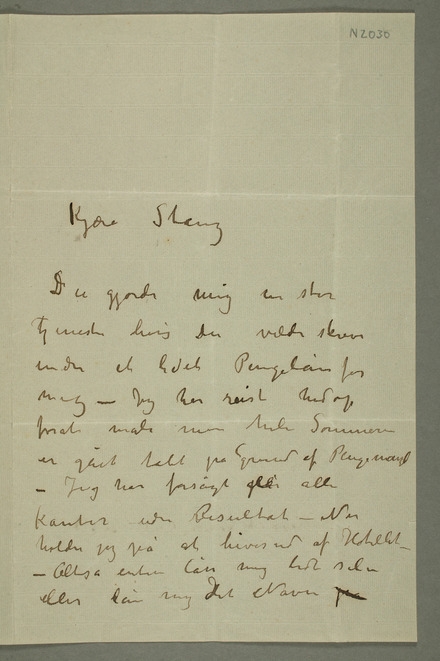 N 2030
Kjære Stang
Du gjorde mig en stor
Tjeneste hvis Du vilde skrive
under et lidet Pengelån for
mig – Jeg har reist hidop
forat male men hele Sommeren
er gået tabt på Grund af Pengemangel
– Jeg har forsøgt på alle
Kanter uden Resultat – Nu
holder jeg på at hives ud af Hotellet –
– Altså enten lån mig lidt selv
eller lån mig Dit Navn på